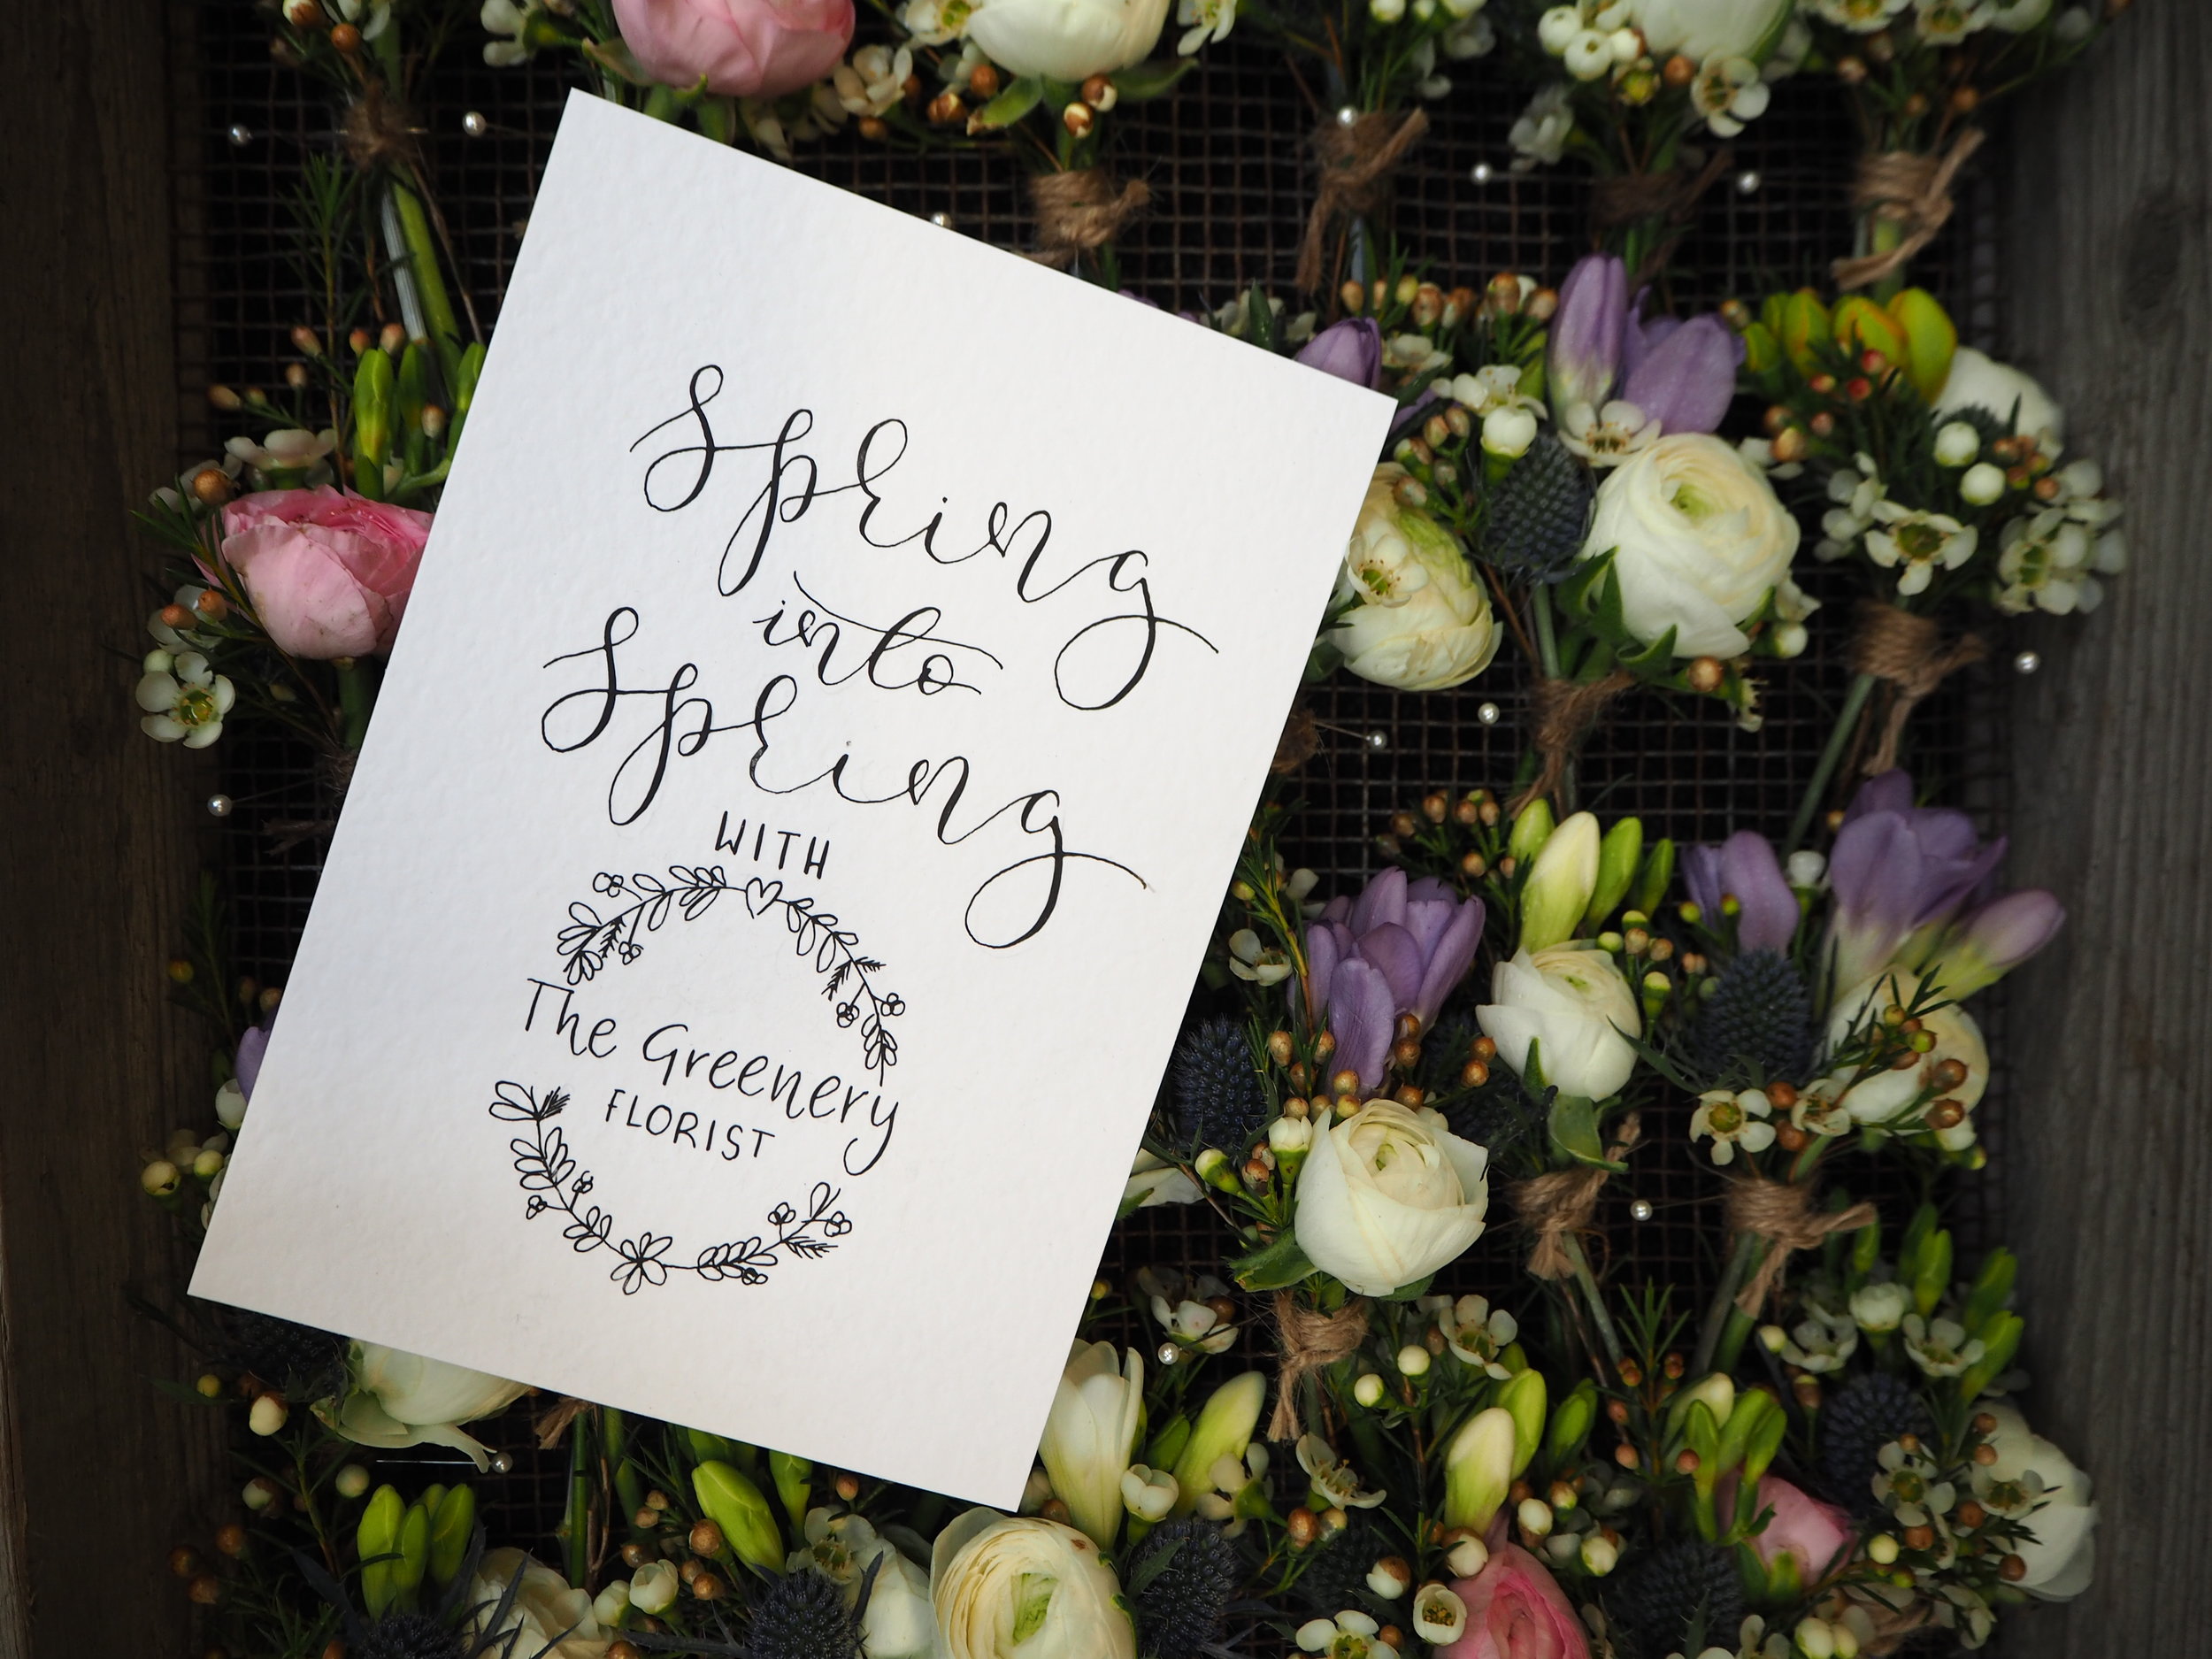 Spring
into
Spring
WITH
The Greenery
FLORIST